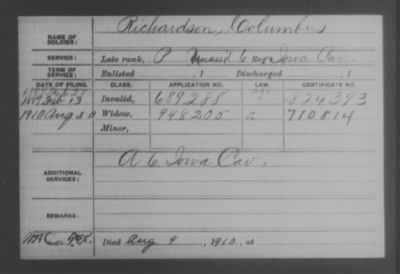 NAME OF SOLDIER: Richardson, Columbus
SERVICE: Late rank, P Unass'd C Reg't Iowa Cav.
TERM OF SERVICE: Enlisted , 1 Discharged , 1
DATE OF FILING. CLASS. APPLICATION NO. LAW. CERTIFICATE NO.
Feb 13 Invalid, 689288 824393
1910 Aug 20 Widow, 948205 710814
Minor,
ADDITIONAL SERVICES: A 6 Iowa Cav.
REMARKS:
Died Aug 9 , 1910, at